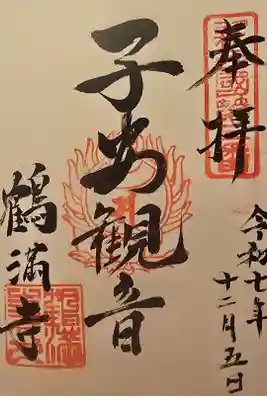 奉拝
令和七年
十二月五日
子安観音
鶴満寺